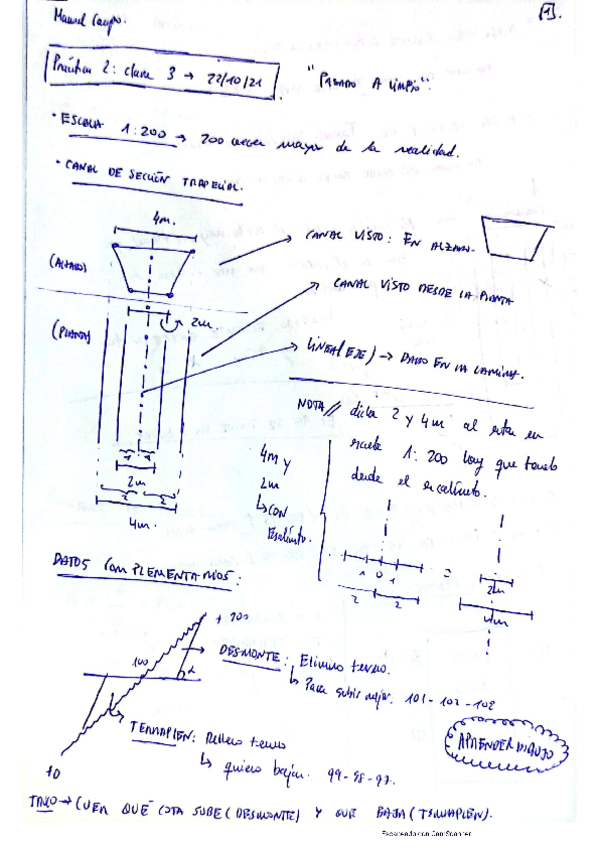 Manuel Campo.
[1].
Práctica 2: clase 3 → 22/10/21.
"PASADO A LIMPIO".
• ESCALA 1:200 → 200 veces mayor de la realidad.
• CANAL DE SECCIÓN TRAPECIAL.
4m.
→ CANAL VISTO: EN ALZADO.
(ALZADO)
→ CANAL VISTO DESDE LA PLANTA
2m
(PLANTA)
→ LÍNEA (EJE) → DADO EN LA LAMINA.
NOTA// dichos 2 y 4m al estar en
escala 1:200 hay que tomarlo
desde el escalímetro.
1 1
2m
2 2
4m.
4m y
2m
↳ CON
Escalímetro.
1 0 1
=
2 2
2m
4m
DATOS COMPLEMENTARIOS:
+ 200
100
α
→ DESMONTE: Elimino terreno.
↳ Para subir mejor. 101-102-102
→ TERRAPLEN: Relleno terreno
↳ quiero bajar. 99-98-97.
APRENDER DIBUJO
10
TRUCO → (VER QUÉ COTA SUBE (DESMONTE) Y QUE BAJA (TERRAPLEN).
Escaneado con CamScanner